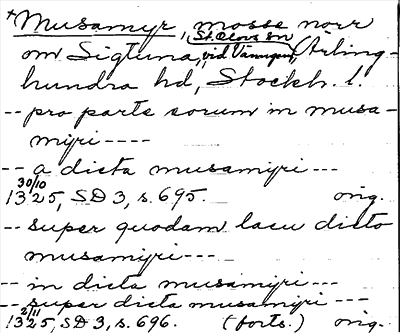 + Musamyr, mosse norr
St. Olovs sn
om Sigtuna, vid Vämyren, (Ärling-
hundra hd, Stockh. l.
-- pro parte sorum in musa-
miri ----
-- a dicta musamiri ---
30/10
1325, SD 3, s. 695. orig.
-- super quodam lacu dicto
musamiri ---
-- in dicta musamiri ---
-- super dicta musamiri ---
2/11
1325, SD 3, s. 696. (forts.) orig.